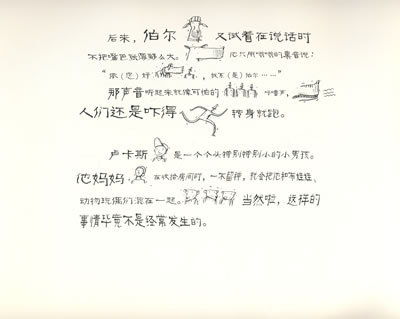 后来，伯尔 又试着在说话时
不把嘴巴张得那么大。 他只用嗡嗡的鼻音说：
“您(您)好 ，我不(是)伯尔……”
那声音听起来就像可怕的
人们还是吓得 转身就跑。
卢卡斯 是一个个头特别特别小的小男孩。
他妈妈 在收拾房间时，一不留神，就会把他和布娃娃、
动物玩偶们混在一起。 当然啦，这样的
事情毕竟不是经常发生的。